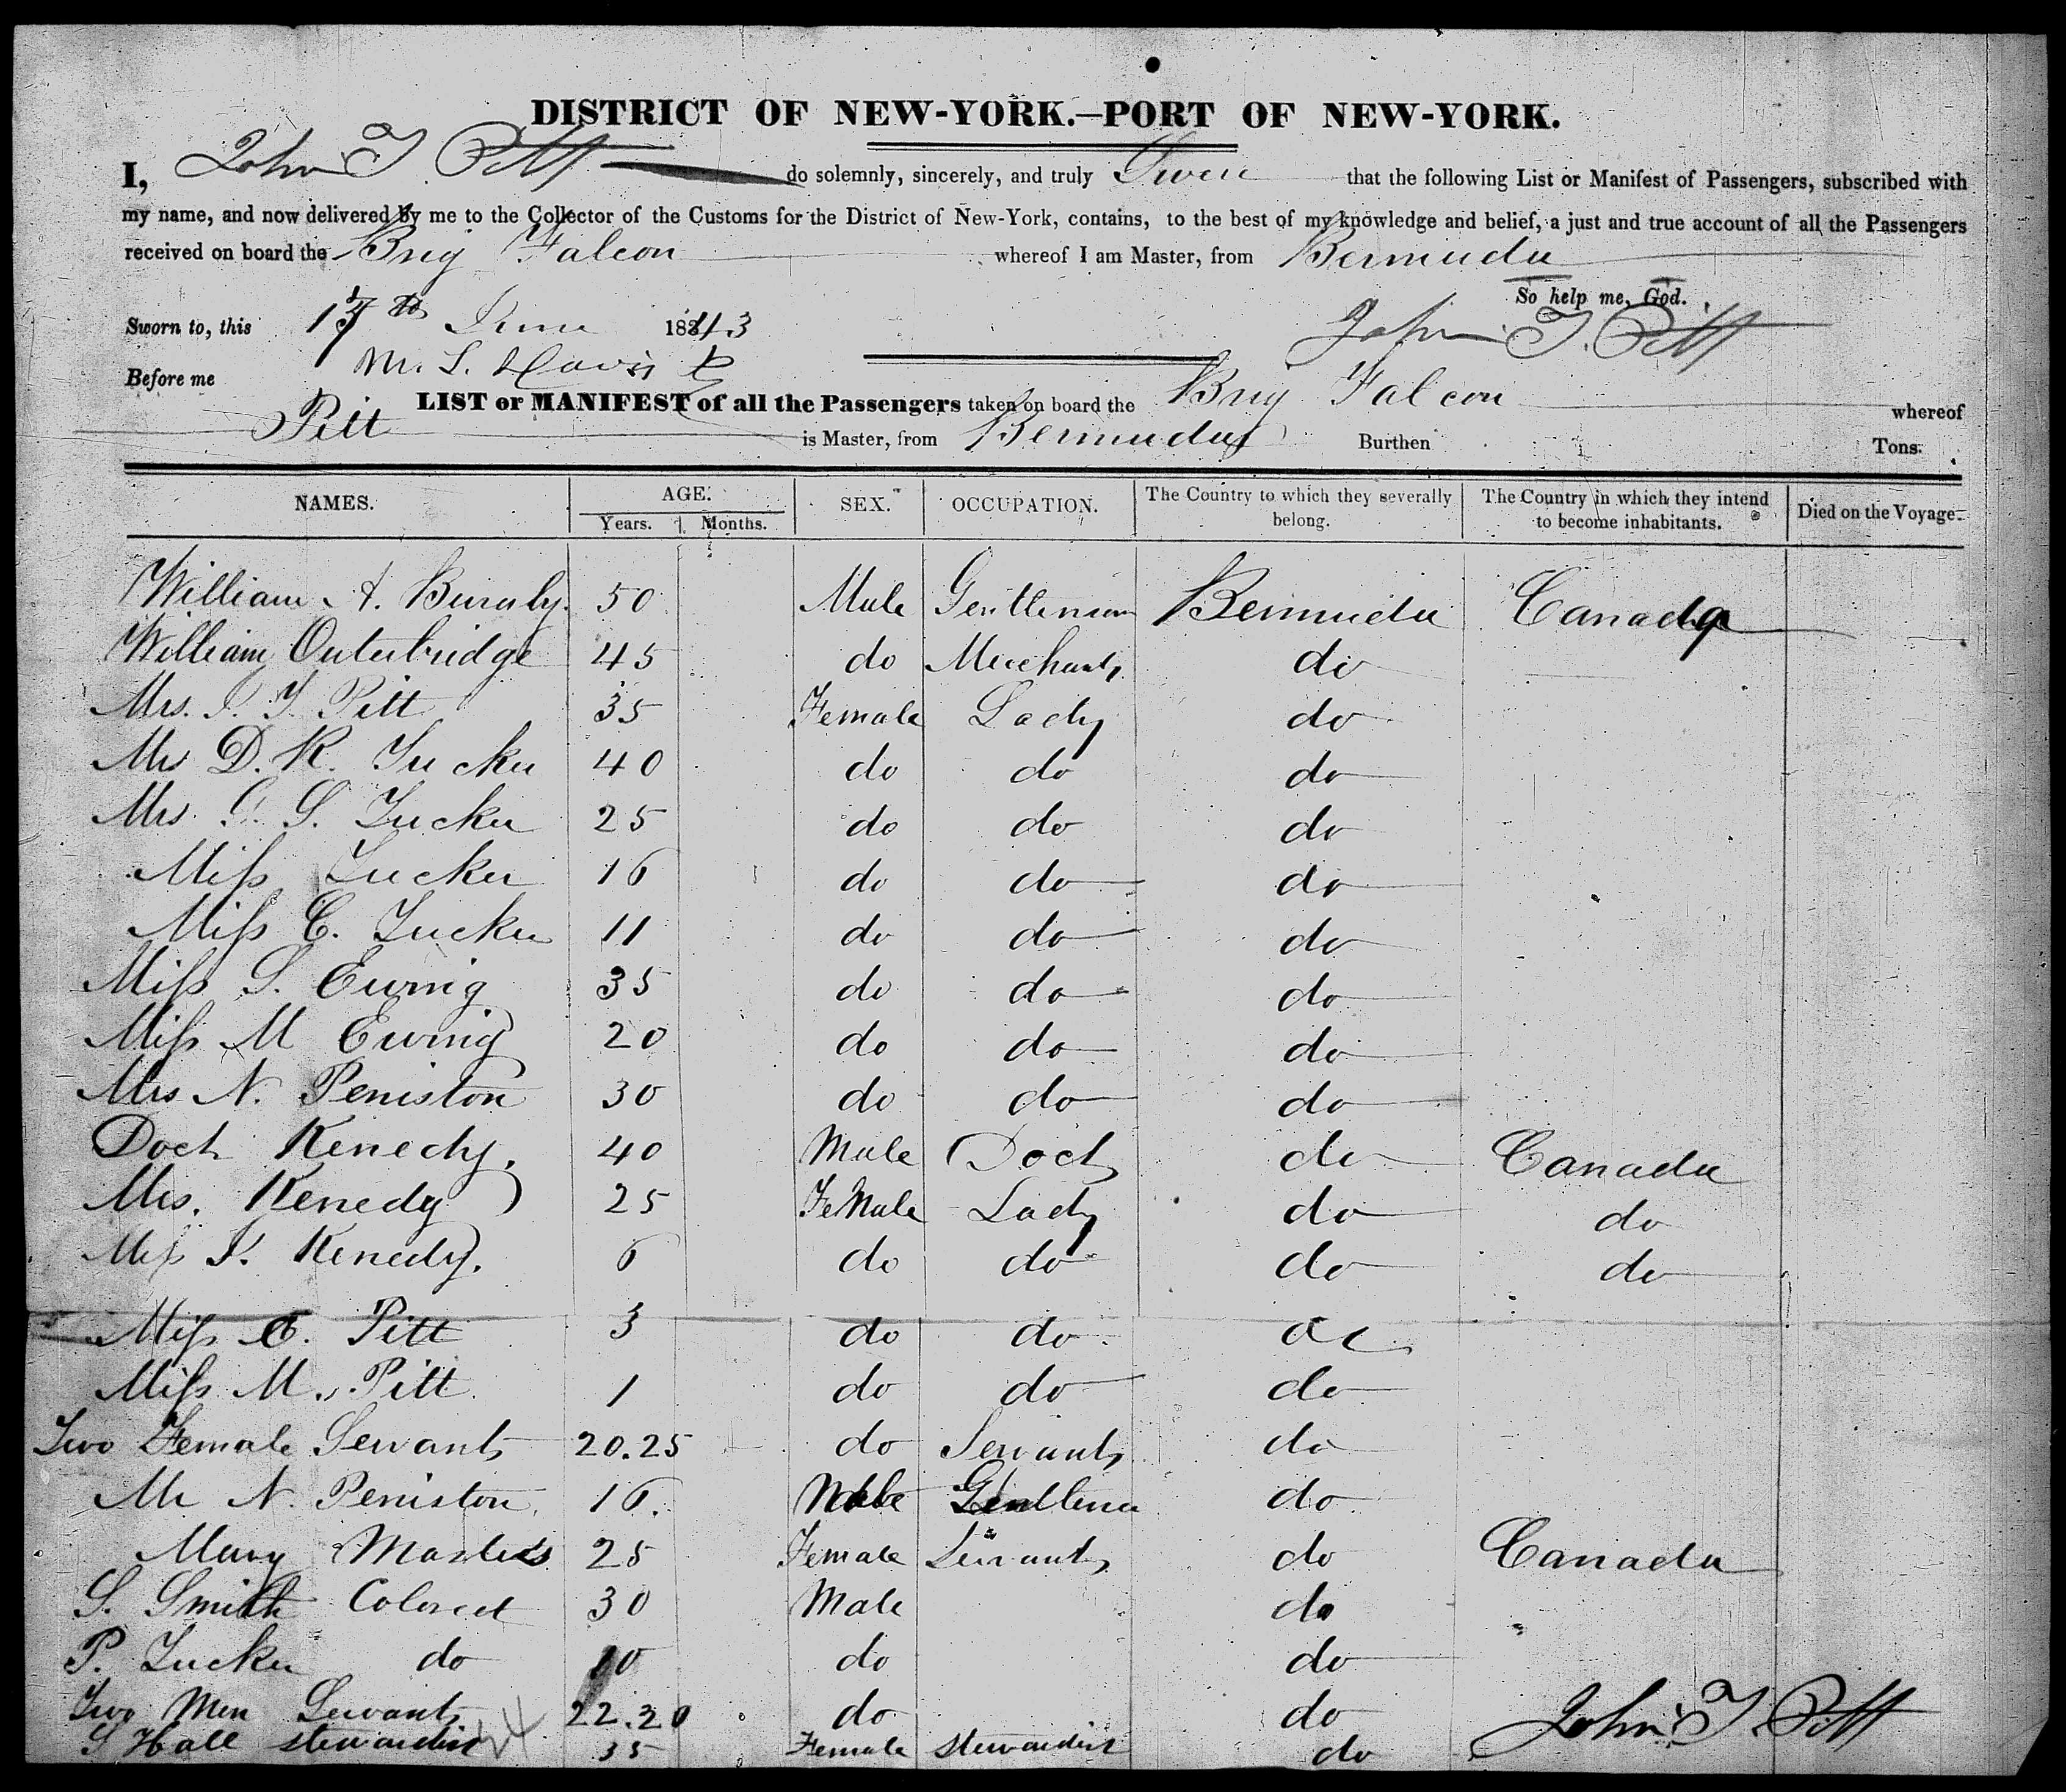 DISTRICT OF NEW-YORK.—PORT OF NEW-YORK.
I, John T Pitt do solemnly, sincerely, and truly Swear that the following List or Manifest of Passengers, subscribed with
my name, and now delivered by me to the Collector of the Customs for the District of New-York, contains, to the best of my knowledge and belief, a just and true account of all the Passengers
received on board the Brig Falcon whereof I am Master, from Bermuda
So help me, God.
Sworn to, this June 1843 John T. Pitt
Before me M. L. Davis
LIST or MANIFEST of all the Passengers taken on board the Brig Falcon whereof
Pitt is Master, from Bermuda Burthen Tons.
NAMES. AGE. SEX. OCCUPATION. The Country to which they severally belong. The Country in which they intend to become inhabitants. Died on the Voyage.
Years. Months.
William A. Burnaby. 50 Male Gentleman Bermuda Canada
William Outerbridge 45 do Merchant do
Mrs. J. T. Pitt 35 Female Lady do
Mrs D. R. Tucker 40 do do do
Mrs S. Tucker 25 do do do
Miss Tucker 16 do do do
Miss C. Tucker 11 do do do
Miss S. Ewing 35 do do do
Miss M Ewing 20 do do do
Mrs N. Peniston 30 do do do
Doct Kenedy. 40 Male Doct do Canada
Mrs. Kenedy 25 FeMale Lady do do
Miss Kenedy. 6 do do do do
Miss C. Pitt 3 do do do
Miss M. Pitt 1 do do do
Two Female Servants 20.25 do Servants do
Mr N. Peniston. 16. Male Gentleman do
Mary Masters 25 Female Servant do Canada
S. Smith Colored 30 Male do
P. Tucker do 10 do do
Two Men Servants 22.20 do do
S Hall stewardess 35 Female stewardess do
John T. Pitt